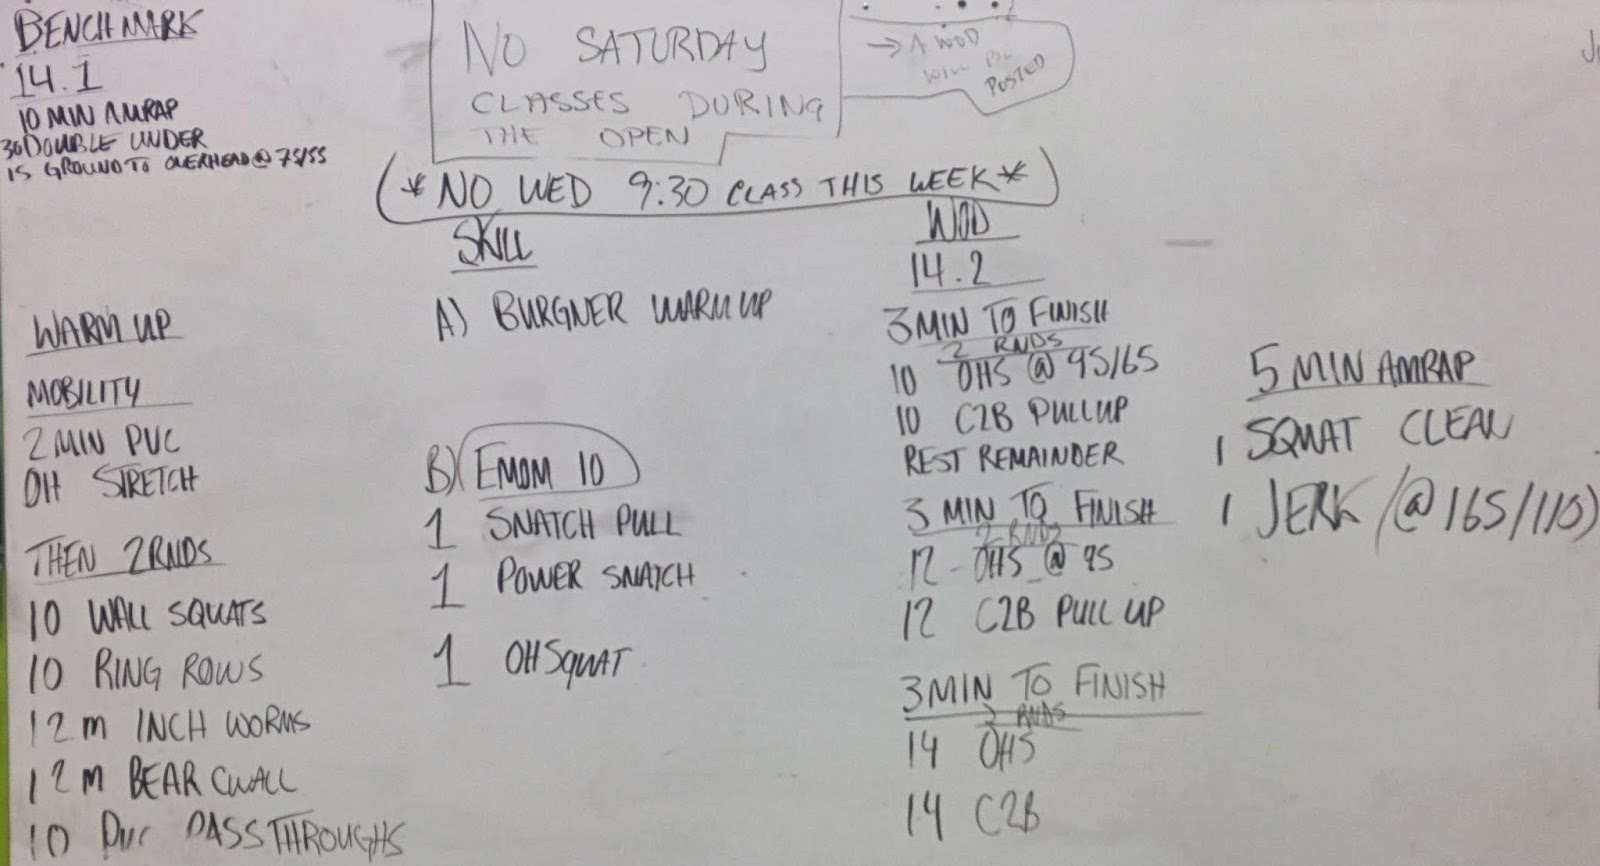 BENCHMARK
14.1
10 MIN AMRAP
30 DOUBLE UNDER
15 GROUND TO OVERHEAD @ 75/55
NO SATURDAY
CLASSES DURING
THE OPEN
→ A WOD
WILL BE
POSTED
*NO WED 9:30 CLASS THIS WEEK*
WARM UP
MOBILITY
2 MIN PVC
OH STRETCH
THEN 2 RNDS
10 WALL SQUATS
10 RING ROWS
12m INCH WORMS
12m BEAR CWALL
10 PVC PASS THROUGHS
SKILL
A) BURGNER WARM UP
B) EMOM 10
1 SNATCH PULL
1 POWER SNATCH
1 OH SQUAT
WOD
14.2
3 MIN TO FINISH
2 RNDS
10 OHS @ 95/65
10 C2B PULLUP
REST REMAINDER
3 MIN TO FINISH
2 RNDS
12 OHS @ 95
12 C2B PULL UP
3 MIN TO FINISH
2 RNDS
14 OHS
14 C2B
5 MIN AMRAP
1 SQUAT CLEAN
1 JERK (@ 165/110)